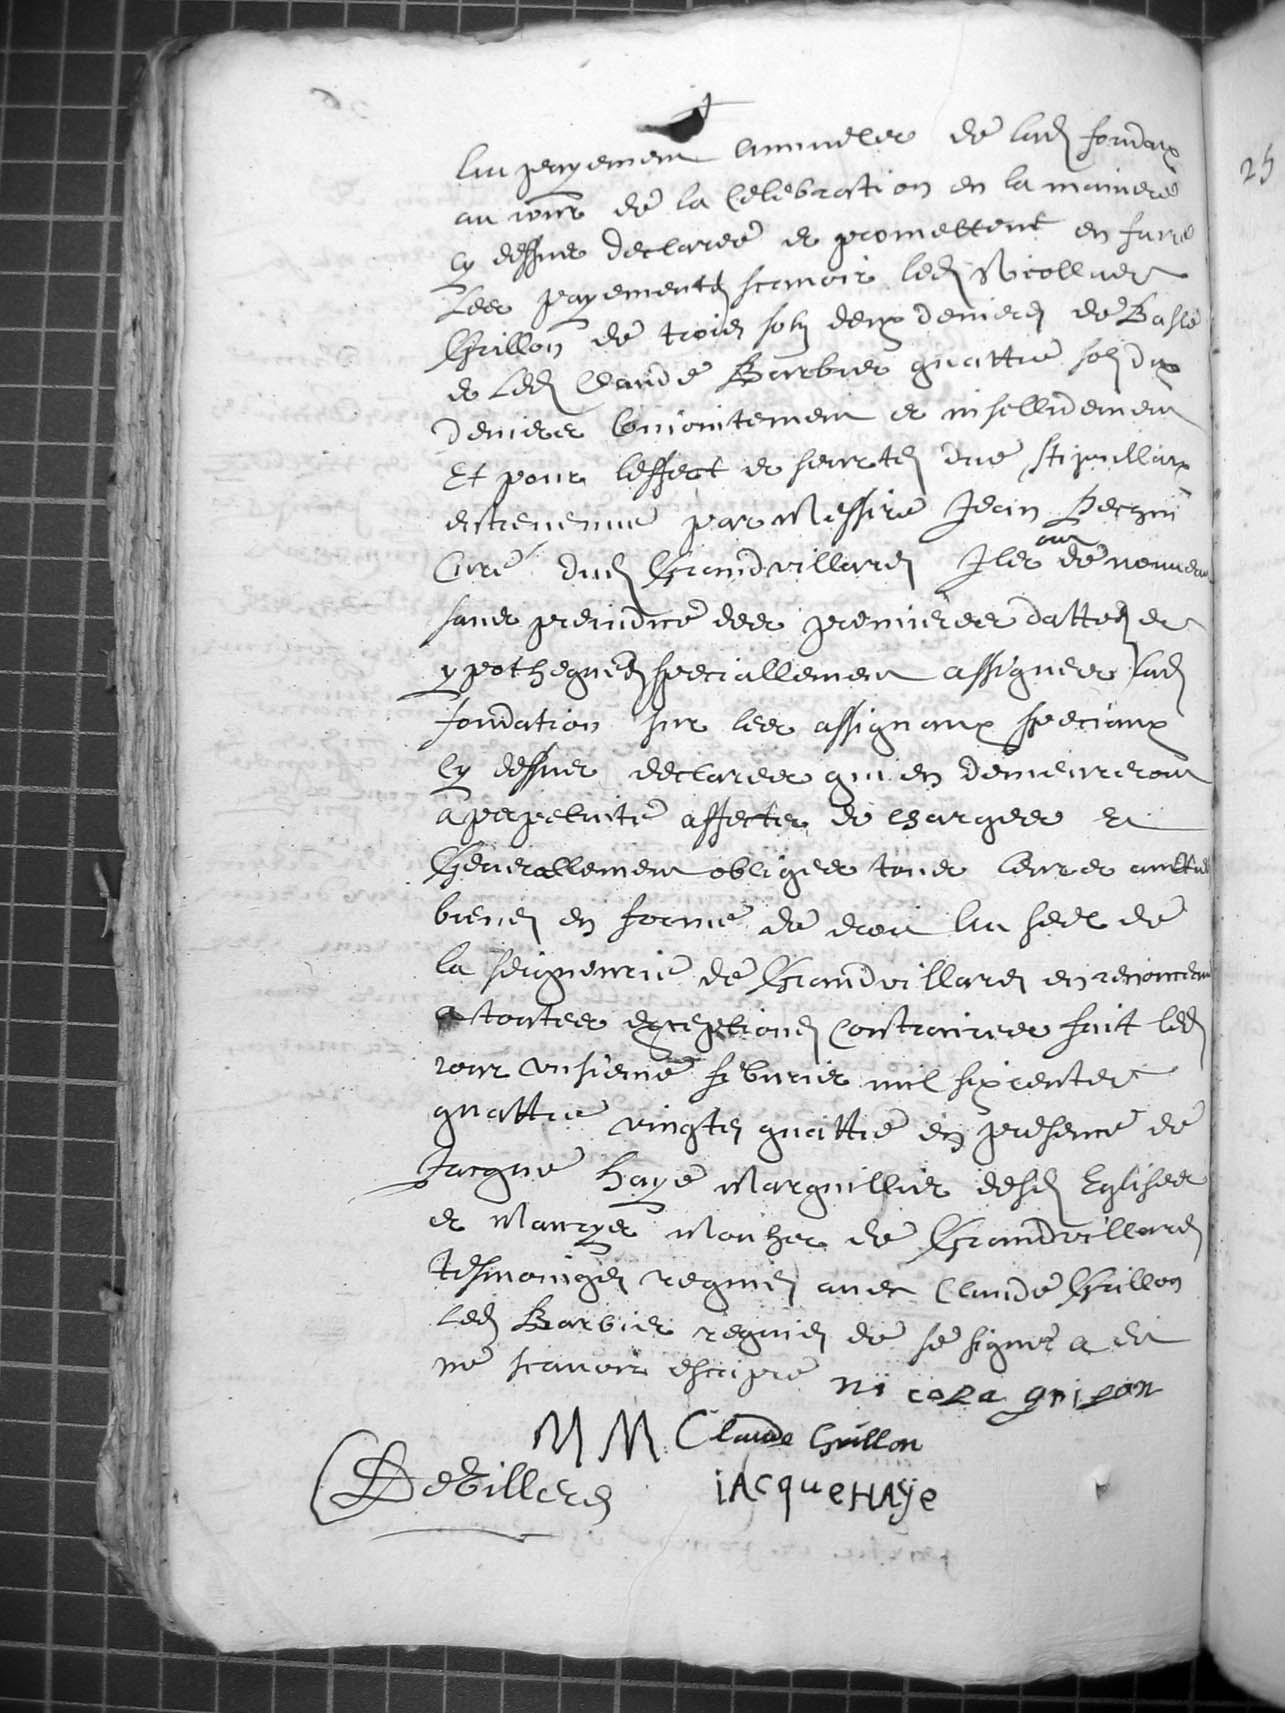 au payement annuelles de lad fondaõn
au jour de la Celebration en la maniere
cy dessus declaree et promettent en faire
Les payements scavoir led Nicollas
Grillon de trois sols deux deniers de Basle
et Led Claude Barbier quattre sols dix
deniers conjointement et insollidement
Et pour leffect et seurtes due stipullaõn
entrevenue par Messire Jean Pequin
Curé dud Grandvillars Ils ont de nouveau
sans preiudice des premieres dattes et
ypotheques speciallement assignes lad
fondation sur les assignaux speciaux
Cy dessus declares qui en demeureront
a perpetuité affectes et charges Et
Generallement obliges tous leurs aultres
biens en forme de droit au seel de
la seigneurie de Grandvillars en renonceant
a toutes exceptions contraires fait led
iour unsieme febvrier mil six cents et
quattre vingts quattre en presence de
Jacque Haye Marguillier desd Eglises
et Maurys Mouhet de Grandvillars
tesmoinges requis avec Claude Grillon
Led Barbier requis de se signer a dit
ne scavoir escripre nicola grilon
M M Claude Grillon
DeVillers iAcque HAye
25